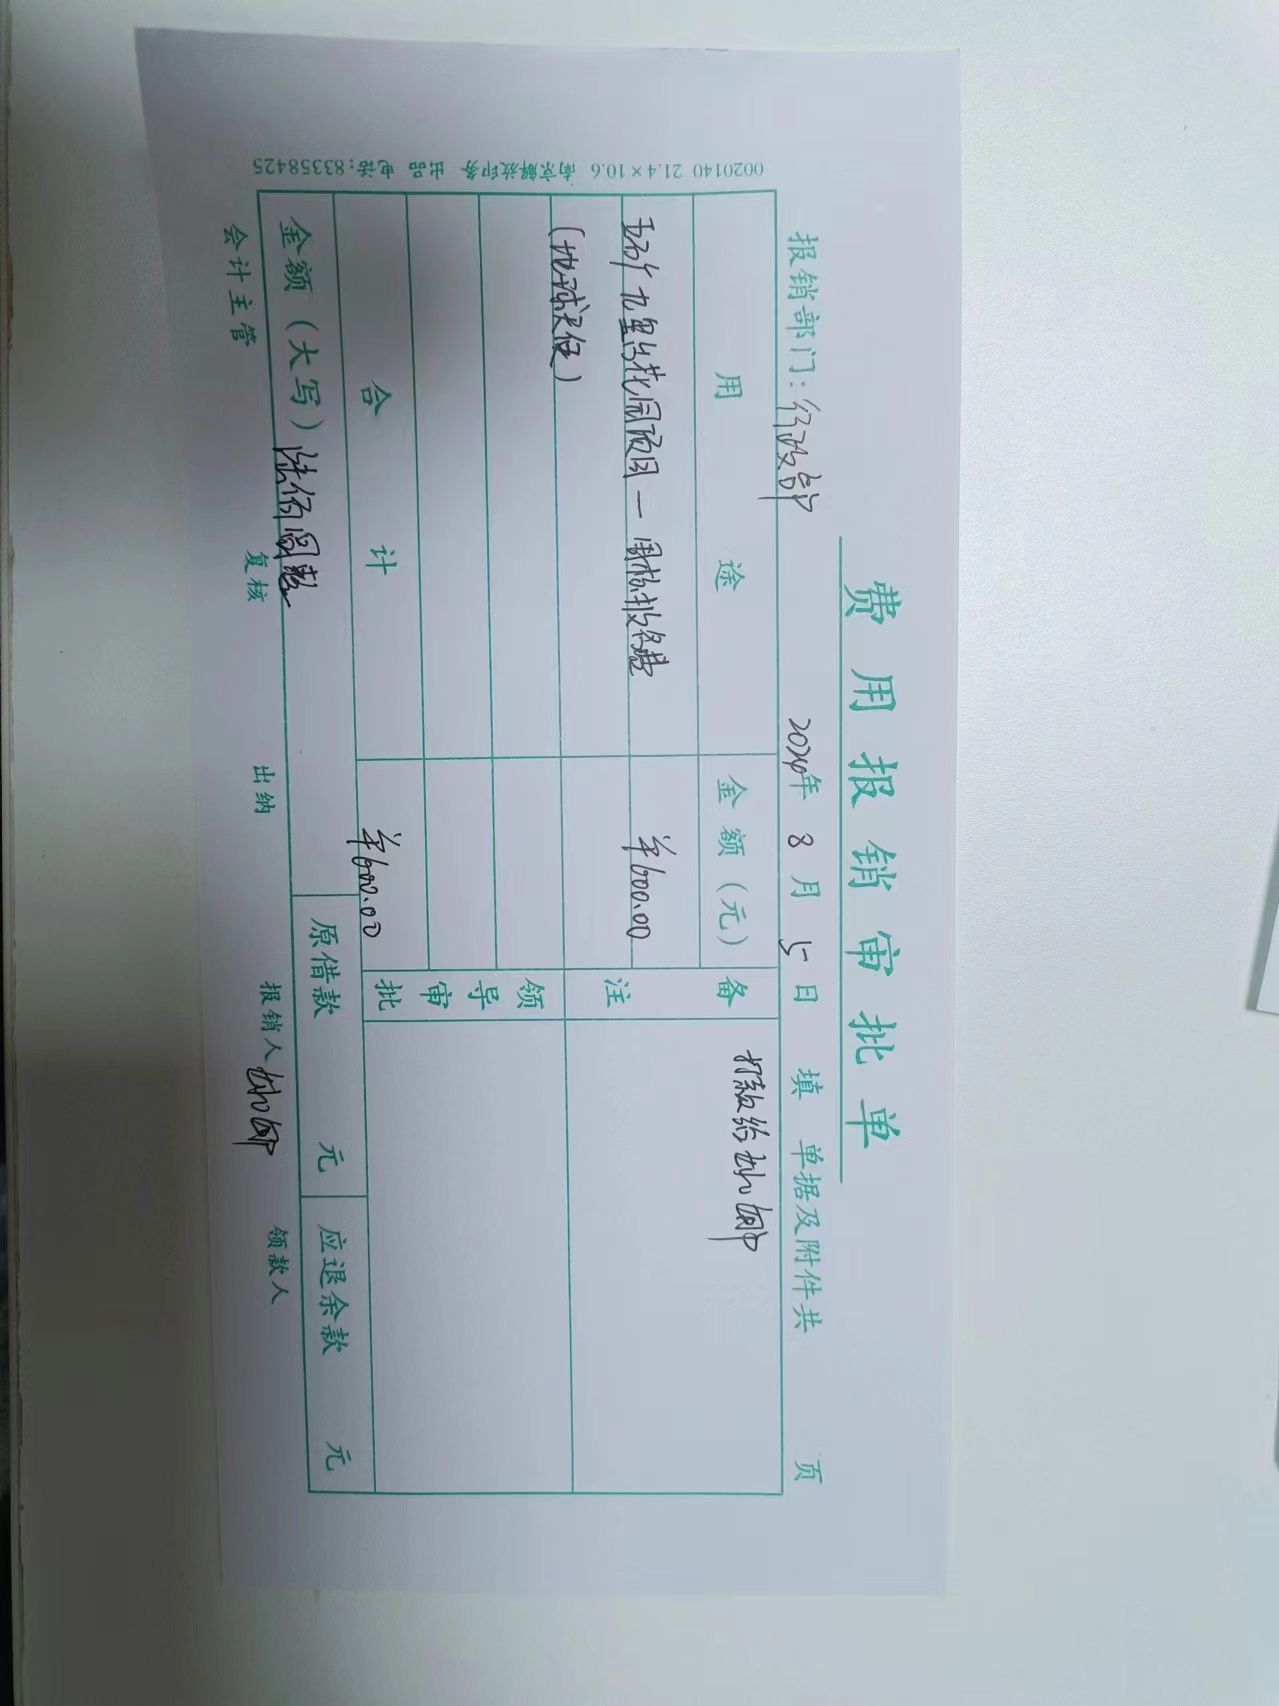 费用报销审批单
报销部门：行政部 2024年 8月 5日 填 单据及附件共 页
用途 金额（元） 备注
五矿九玺台花园项目一围档报名费 ￥600.00 打款给
（地球天使）
领导审批
合计 ￥600.00
金额（大写）陆佰圆整 原借款 元 应退余款 元
会计主管 复核 出纳 报销人 领款人
0020140 21.4×10.6 南京解放印务 出品 电话：83358425